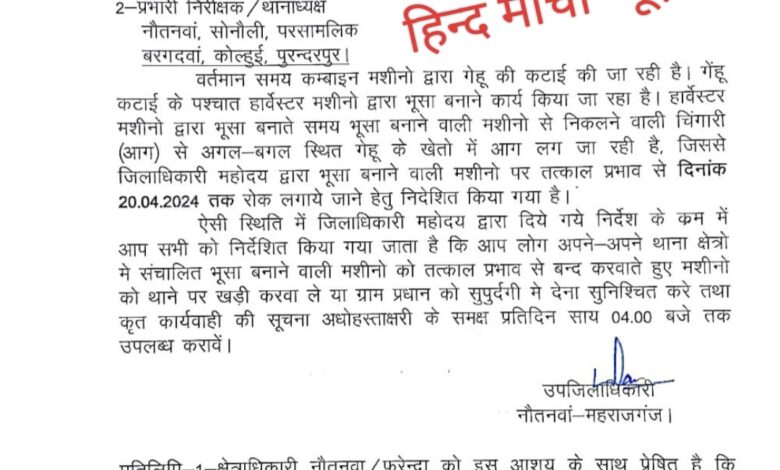 2–प्रभारी निरीक्षक/थानाध्यक्ष
नौतनवां, सोनौली, परसामलिक
बरगदवां, कोल्हुई, पुरन्दरपुर।
हिन्द मोर्चा
वर्तमान समय कम्बाइन मशीनो द्वारा गेहू की कटाई की जा रही है। गेंहू
कटाई के पश्चात हार्वेस्टर मशीनो द्वारा भूसा बनाने कार्य किया जा रहा है। हार्वेस्टर
मशीनो द्वारा भूसा बनाते समय भूसा बनाने वाली मशीनो से निकलने वाली चिंगारी
(आग) से अगल–बगल स्थित गेहू के खेतो में आग लग जा रही है, जिससे
जिलाधिकारी महोदय द्वारा भूसा बनाने वाली मशीनो पर तत्काल प्रभाव से दिनांक
20.04.2024 तक रोक लगाये जाने हेतु निदेशित किया गया है।
ऐसी स्थिति में जिलाधिकारी महोदय द्वारा दिये गये निर्देश के कम में
आप सभी को निर्देशित किया गया जाता है कि आप लोग अपने–अपने थाना क्षेत्रो
मे संचालित भूसा बनाने वाली मशीनो को तत्काल प्रभाव से बन्द करवाते हुए मशीनो
को थाने पर खड़ी करवा ले या ग्राम प्रधान को सुपुर्दगी मे देना सुनिश्चित करे तथा
कृत कार्यवाही की सूचना अधोहस्ताक्षरी के समक्ष प्रतिदिन साय 04.00 बजे तक
उपलब्ध करावें।
उपजिलाधिकारी
नौतनवां–महराजगंज।
प्रतिलिपि–1–क्षेत्राधिकारी नौतनवा/फरेन्दा को इस आशय के साथ प्रेषित है कि